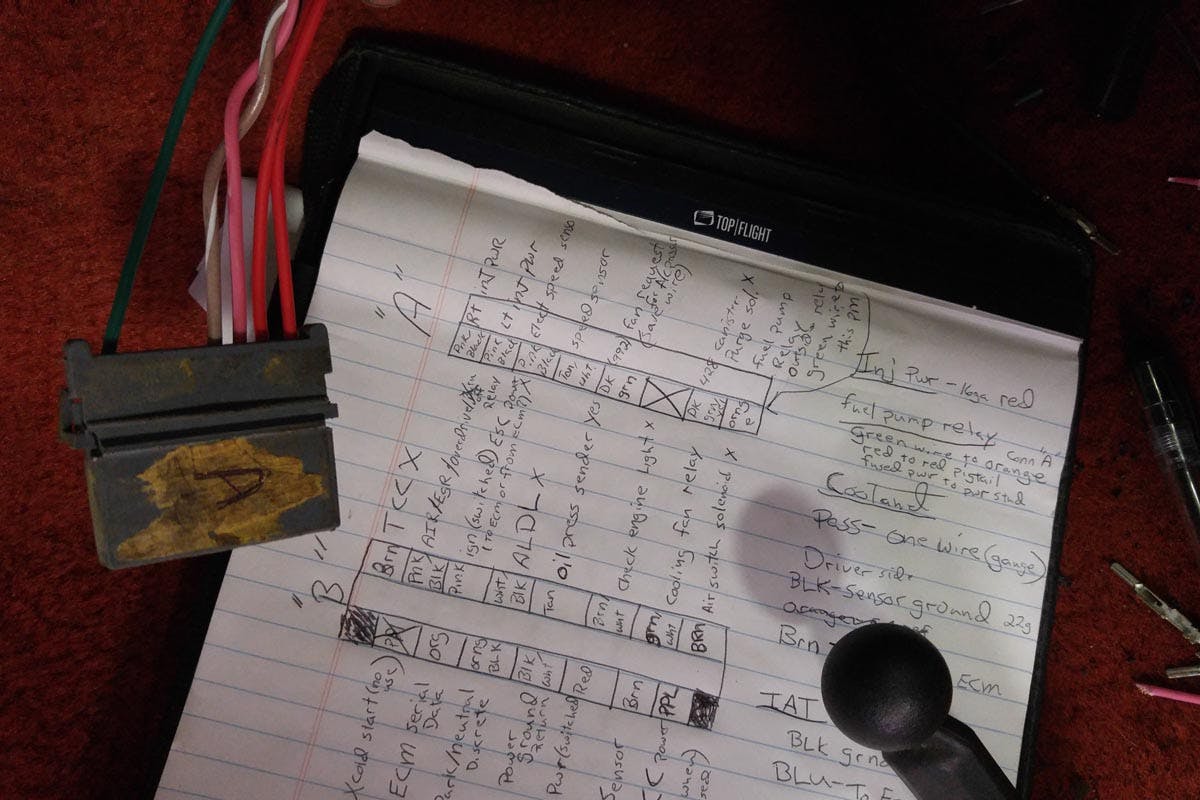 A
TOP FLIGHT
"A"
Pink Black
RT
INJ PWR
Pink Black
LT
INJ PWR
Pink Black
crnk speed senso
Tan/ wht
speed sensor
DK grn
(792)
fan request
(save for A/C
wire)
DK grn/ yel
428
canister
Purge sol. X
orng e
fuel Pump
Relay
green wire
this pin
Inj Pwr - 16ga red
fuel pump relay
Green wire to orange Conn "A"
red to red pigtail
fused pwr to pwr stud
Coolant
Pass- one wire (gauge)
Driver side
BLK-Sensor ground 22g
Brn -
ECM
IAT
BLK grn
BLU- To E
"B"
Brn
TCC X
Pnk Blk
AIR/EGR/overDrive/
Pink
ign (switched) ESC Relay
(to Ecm or from ecm?) X
wht BLK
ALDL X
Tan
oil press sender Yes
Brn/ wht
Check engine light X
Brn wht
Cooling fan relay
BRN
Air switch solenoid X
X Cold start (no use)
ORG
ECM Serial Data
orng BLK
Park/neutral
Discrete
Blk wht
Power
Ground
Return
Red
Pwr (switched
Brn
Sensor
PPL
Power
when